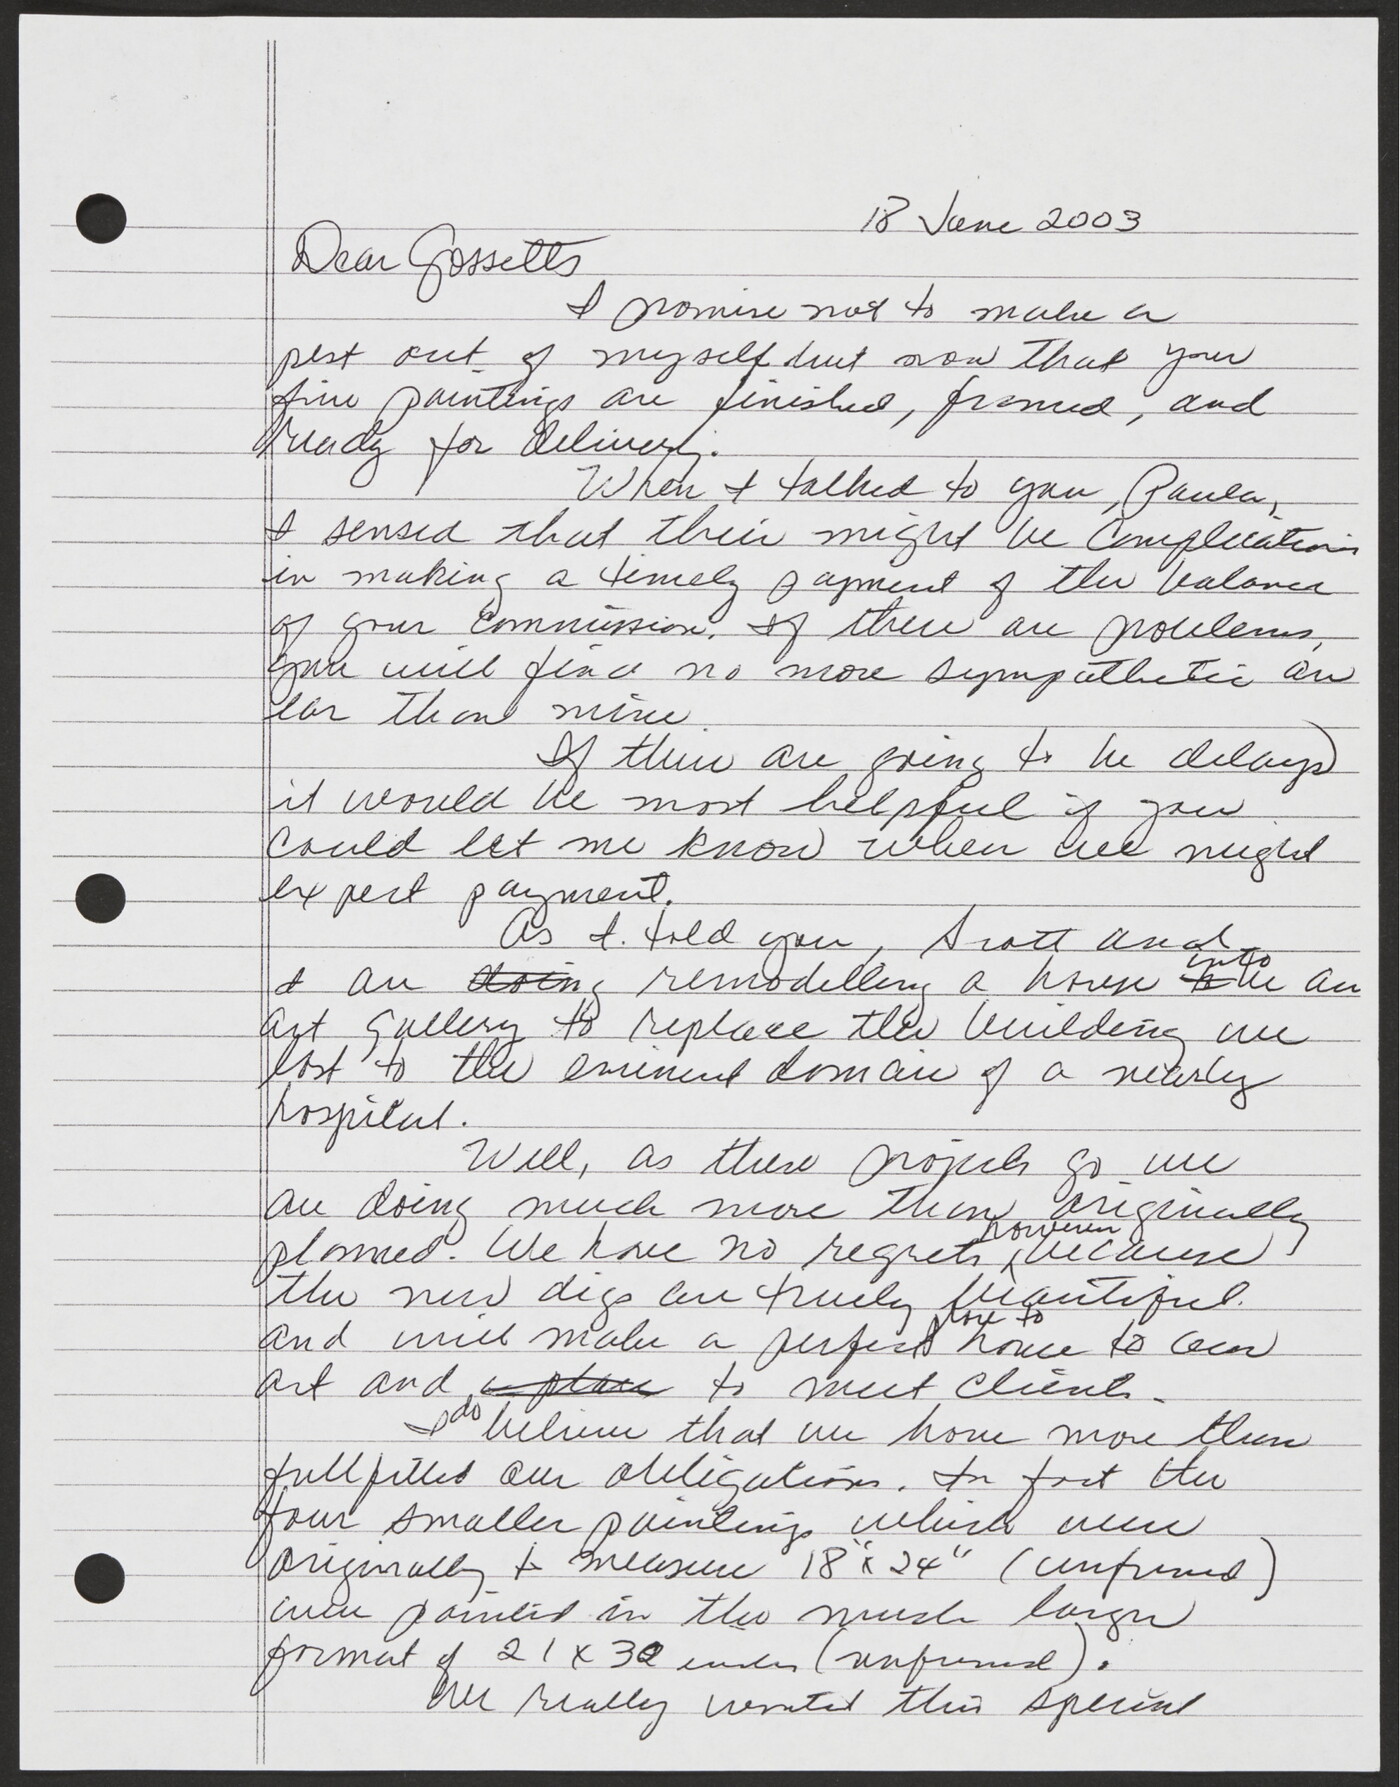 18 June 2003
Dear Gossetts
I promise not to make a
pest out of myself but now that your
fine paintings are finished, framed, and
ready for delivery.
When I talked to you, Paula,
I sensed that their might be complications
in making a timely payment of the balance
of your commission. If there are problems,
you will find no more sympathetic an
ear than mine
If there are going to be delays
it would be most helpful if you
could let me know when we might
expect payment.
As I told you, Scott and
I are doing remodelling a house into
to be an
art gallery to replace the building we
lost to the eminent domain of a nearby
hospital.
Well, as these projects go we
are doing much more than originally
planned. We have no regrets, however because
the new digs are truly beautiful.
and will make a perfect place to house to our
art and a place to meet clients.
I do believe that we have more than
fullfilled our obligations. In fact the
four smaller paintings which were
originally to measure 18" x 24" (unframed)
were painted in the much larger
format of 21 x 30 inches (unframed).
We really wanted this special